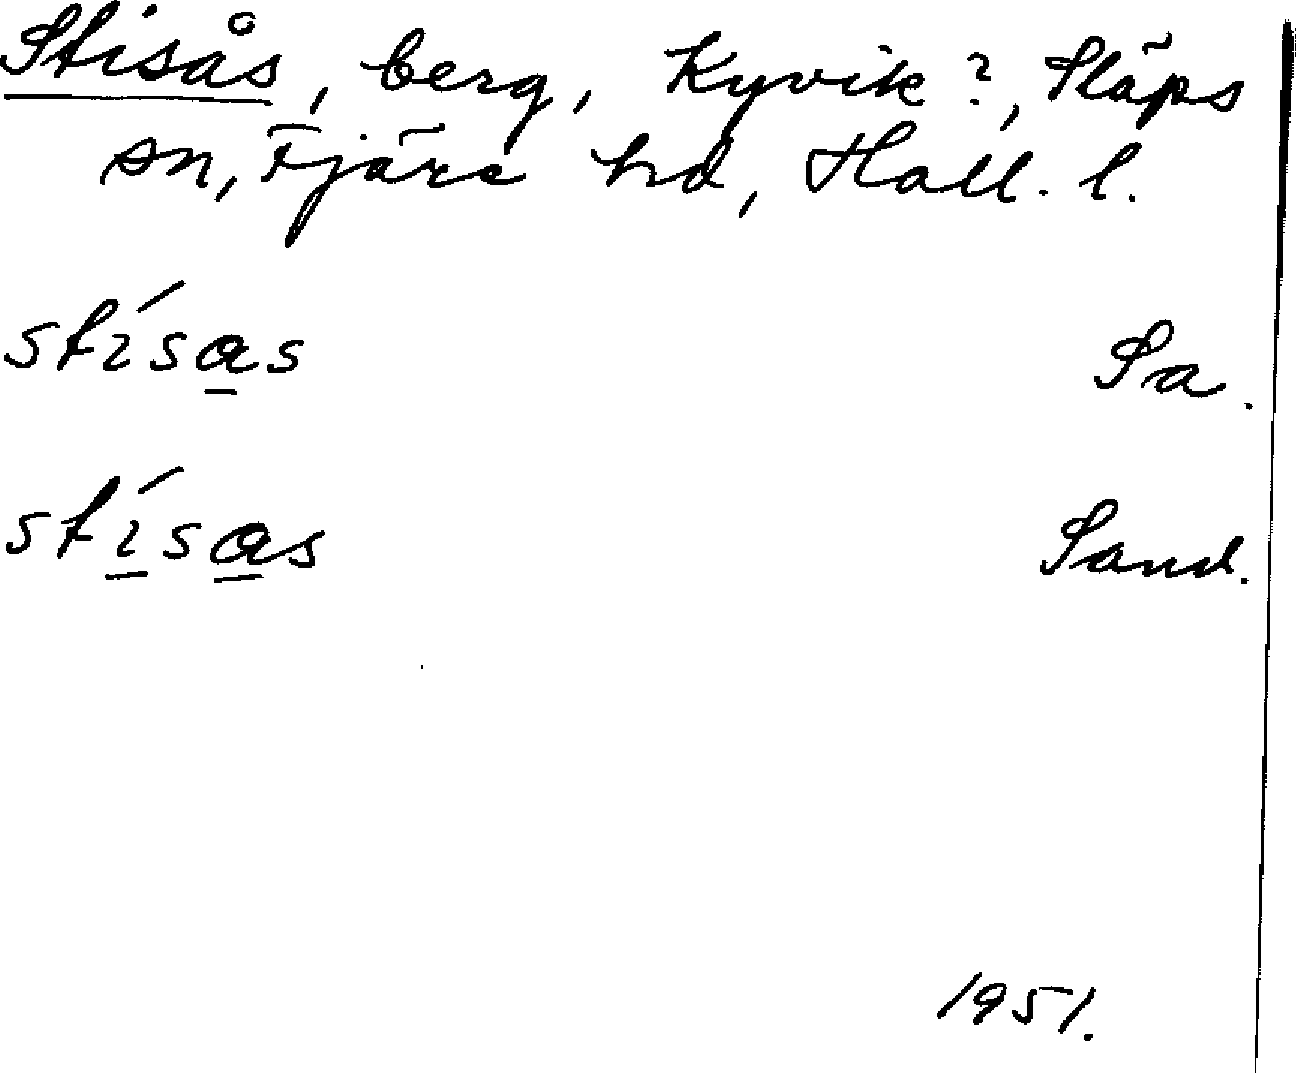 Stisås, berg, Kyvik?, Släps
sn, Fjäre hd, Hall. l.
stísas Sa.
stísas Sand.
1951.